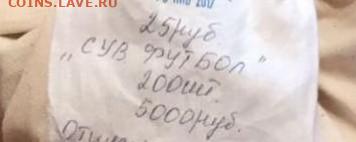 COINS.LAV.RU
ЯНВ 2017
25 руб
"СУВ ФУТБОЛ"
200 шт.
5000 руб.